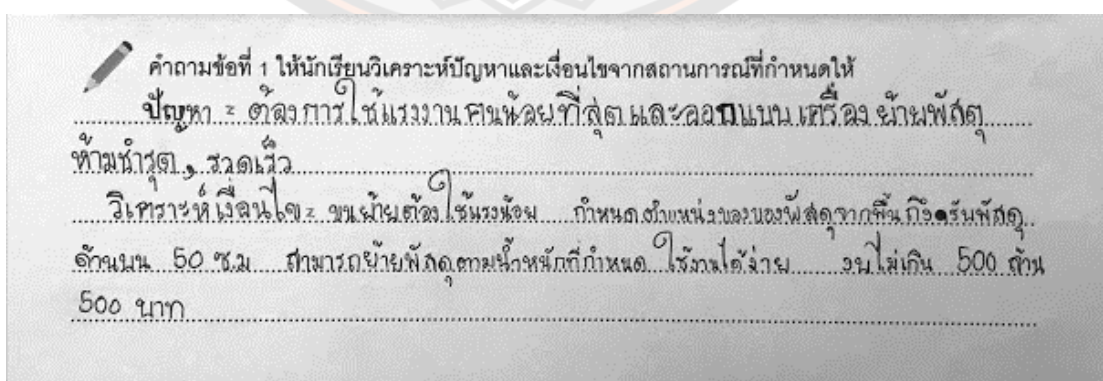 คำถามข้อที่ 1 ให้นักเรียนวิเคราะห์ปัญหาและเงื่อนไขจากสถานการณ์ที่กำหนดให้
ปัญหา = ต้องการใช้แรงงานคนน้อยที่สุดและออกแบบเครื่องย้ายพัสดุ
ห้ามชำรุด, รวดเร็ว
วิเคราะห์เงื่อนไข = ขนย้ายต้องใช้แรงน้อย กำหนดตำแหน่งของของพัสดุจากพื้นถึงชั้นพัสดุ
ด้านบน 50 ซ.ม สามารถย้ายพัสดุตามน้ำหนักที่กำหนด ใช้งานได้ง่าย งบไม่เกิน 500 ล้าน
500 บาท